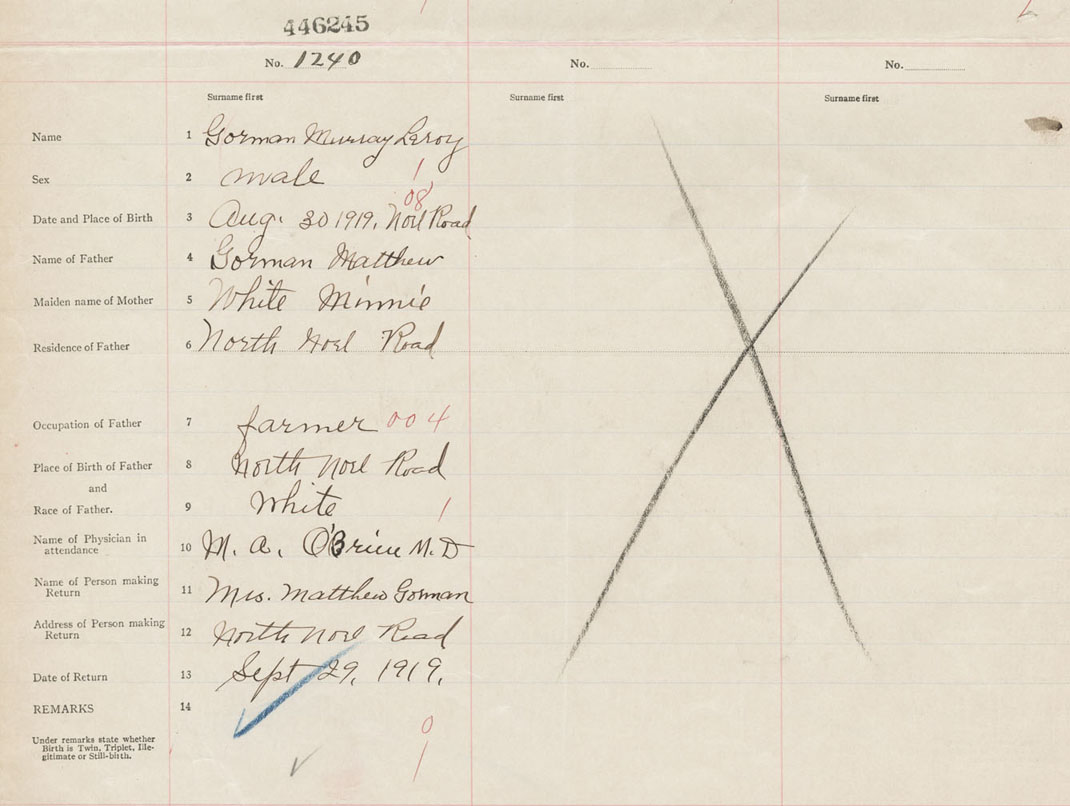 446245
No. 1240 No. No.
Surname first Surname first Surname first
Name 1 Gorman Murray Leroy
Sex 2 male 1
08
Date and Place of Birth 3 Aug. 30 1919. Noel Road
Name of Father 4 Gorman Matthew
Maiden name of Mother 5 White Minnie
Residence of Father 6 North Noel Road
Occupation of Father 7 farmer 004
Place of Birth of Father 8 North Noel Road
and
Race of Father. 9 White 1
Name of Physician in
attendance 10 M. A. O'Brien M. D
Name of Person making
Return 11 Mrs. Matthew Gorman
Address of Person making
Return 12 North Noel Road
Date of Return 13 Sept 29, 1919.
REMARKS 14
0
Under remarks state whether
Birth is Twin, Triplet, Ille-
gitimate or Still-birth.
1